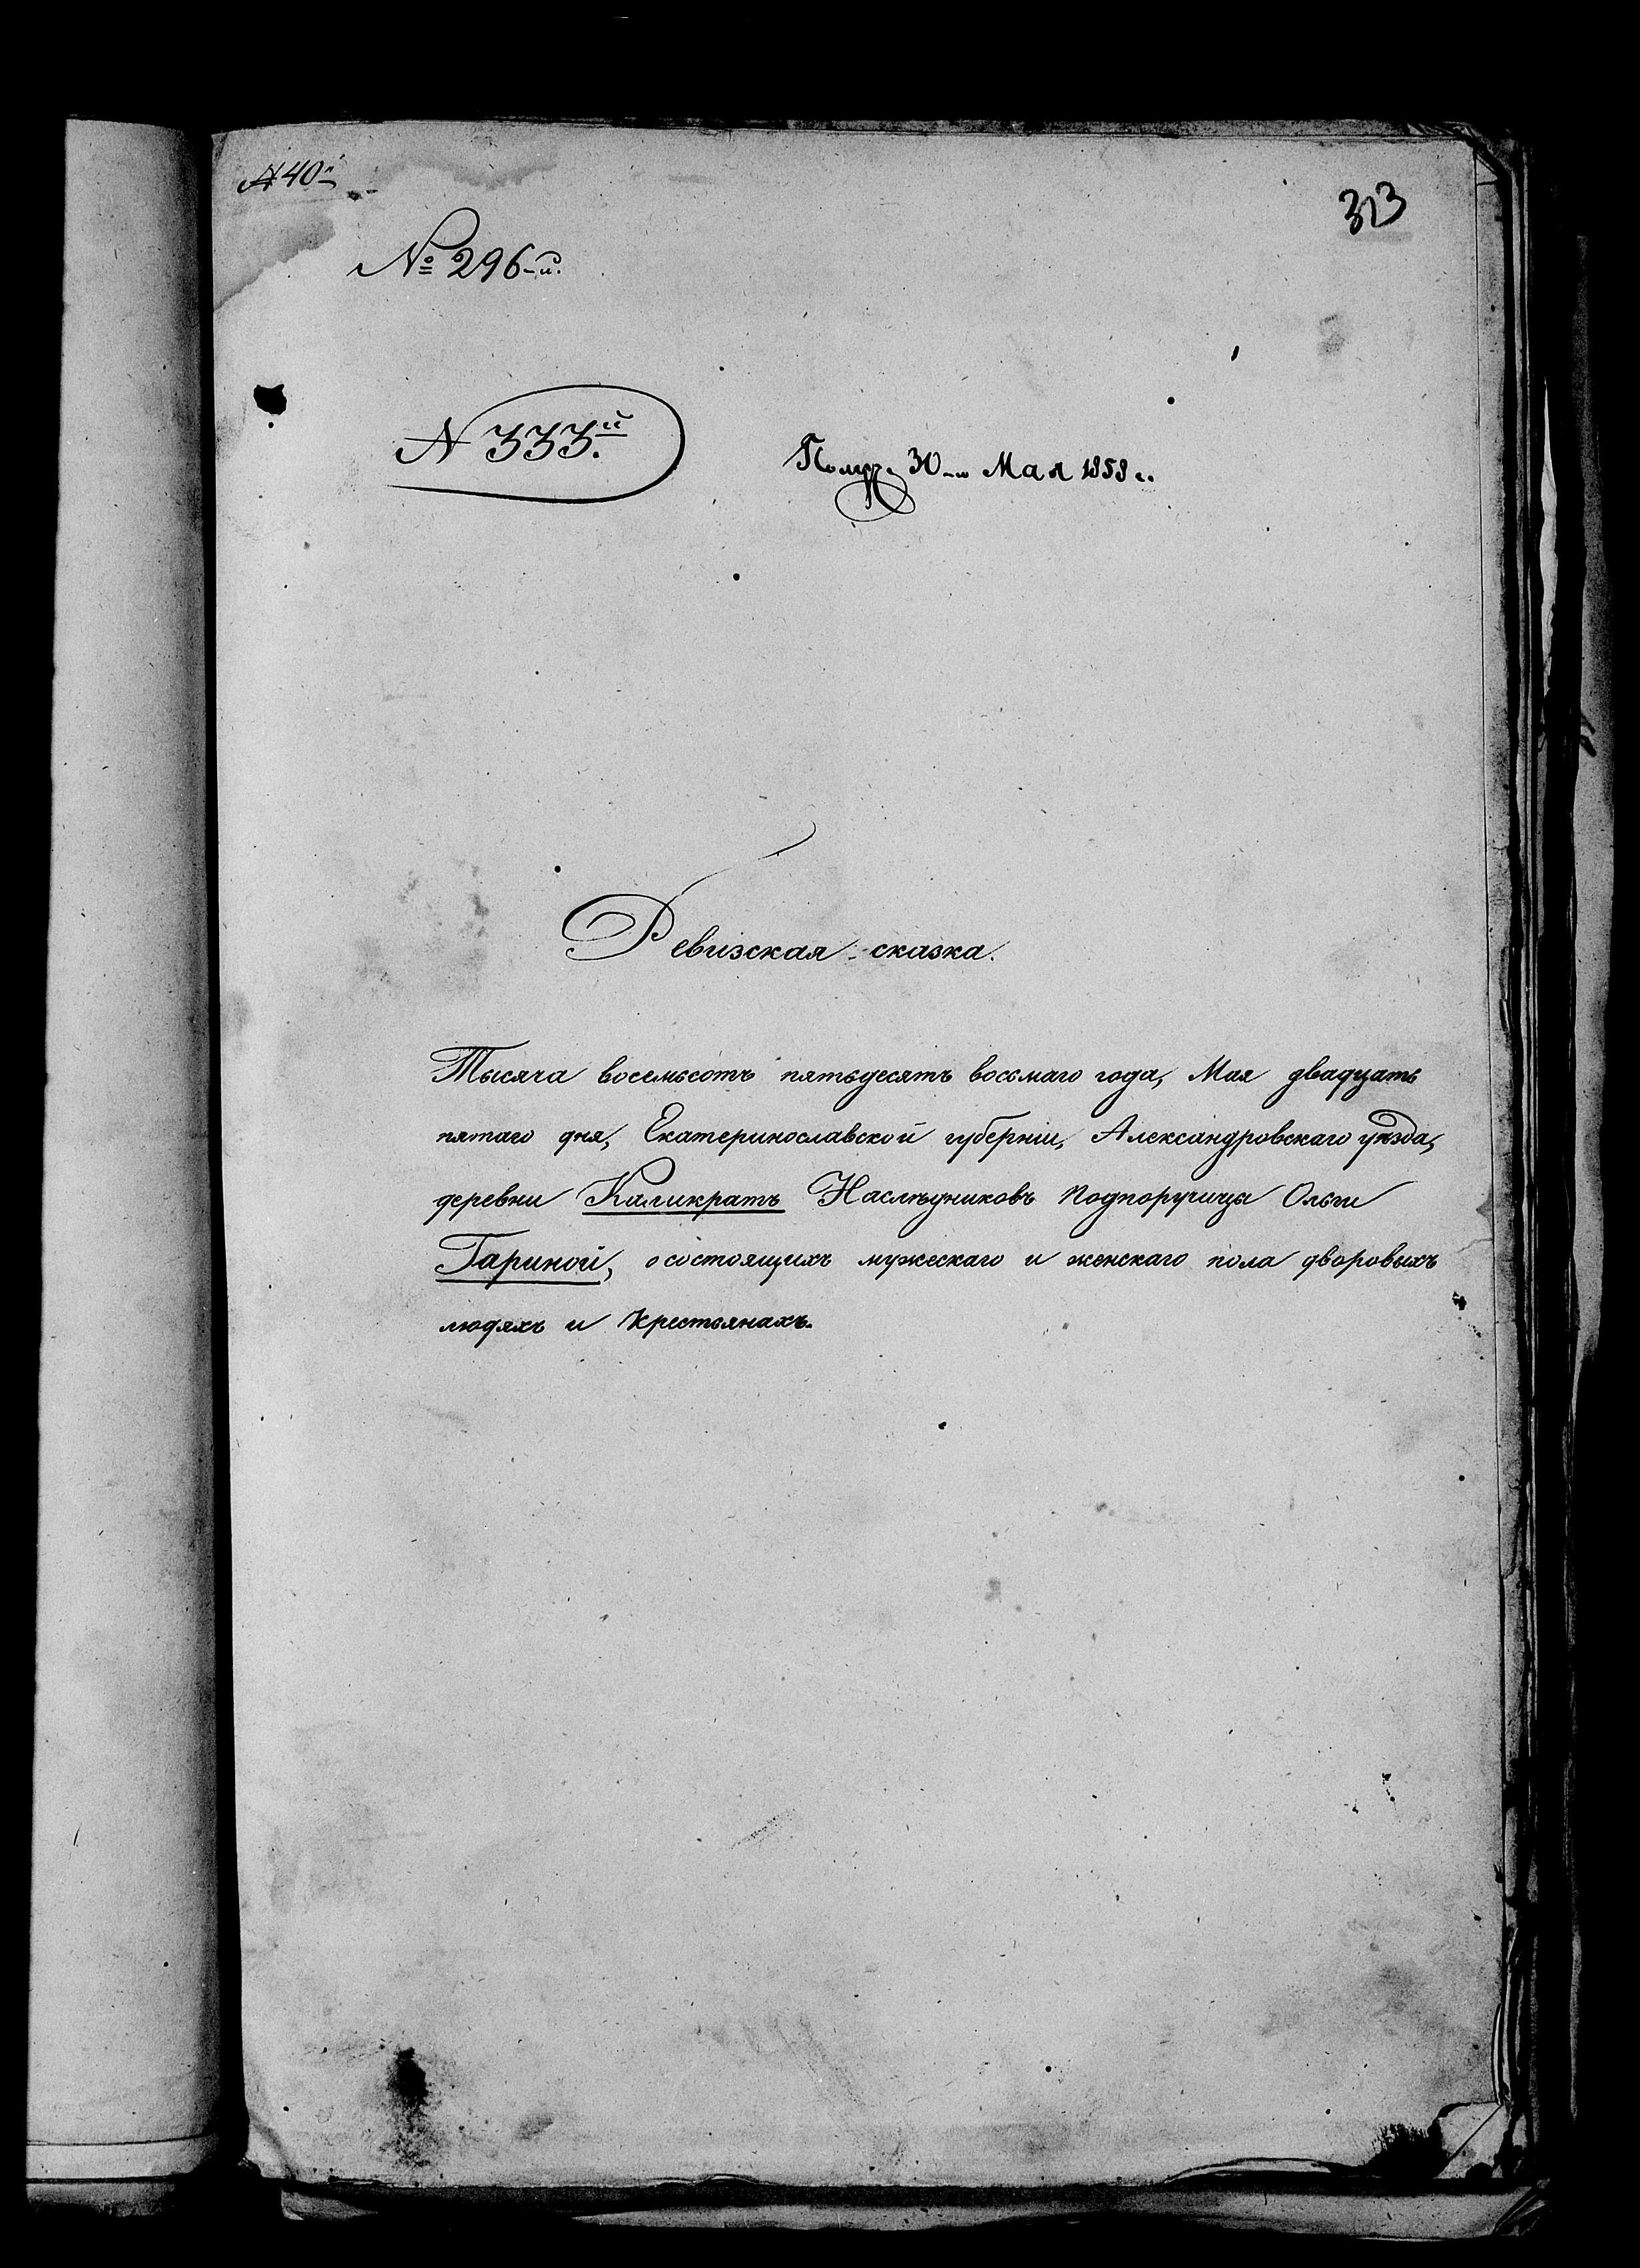 № 40й
313
№ 296-й.
№ 333.й
Получ. 30-го Мая 1858 г.
Ревизская сказка.
Тысяча восемьсотъ пятьдесятъ восьмаго года, Мая двадцать
пятаго дня, Екатеринославской губерніи, Александровскаго уѣзда,
деревни Каликратъ Наслѣдниковъ Подпоручицы Ольги
Гариной, о состоящихъ мужескаго и женскаго пола дворовыхъ
людяхъ и крестьянахъ.